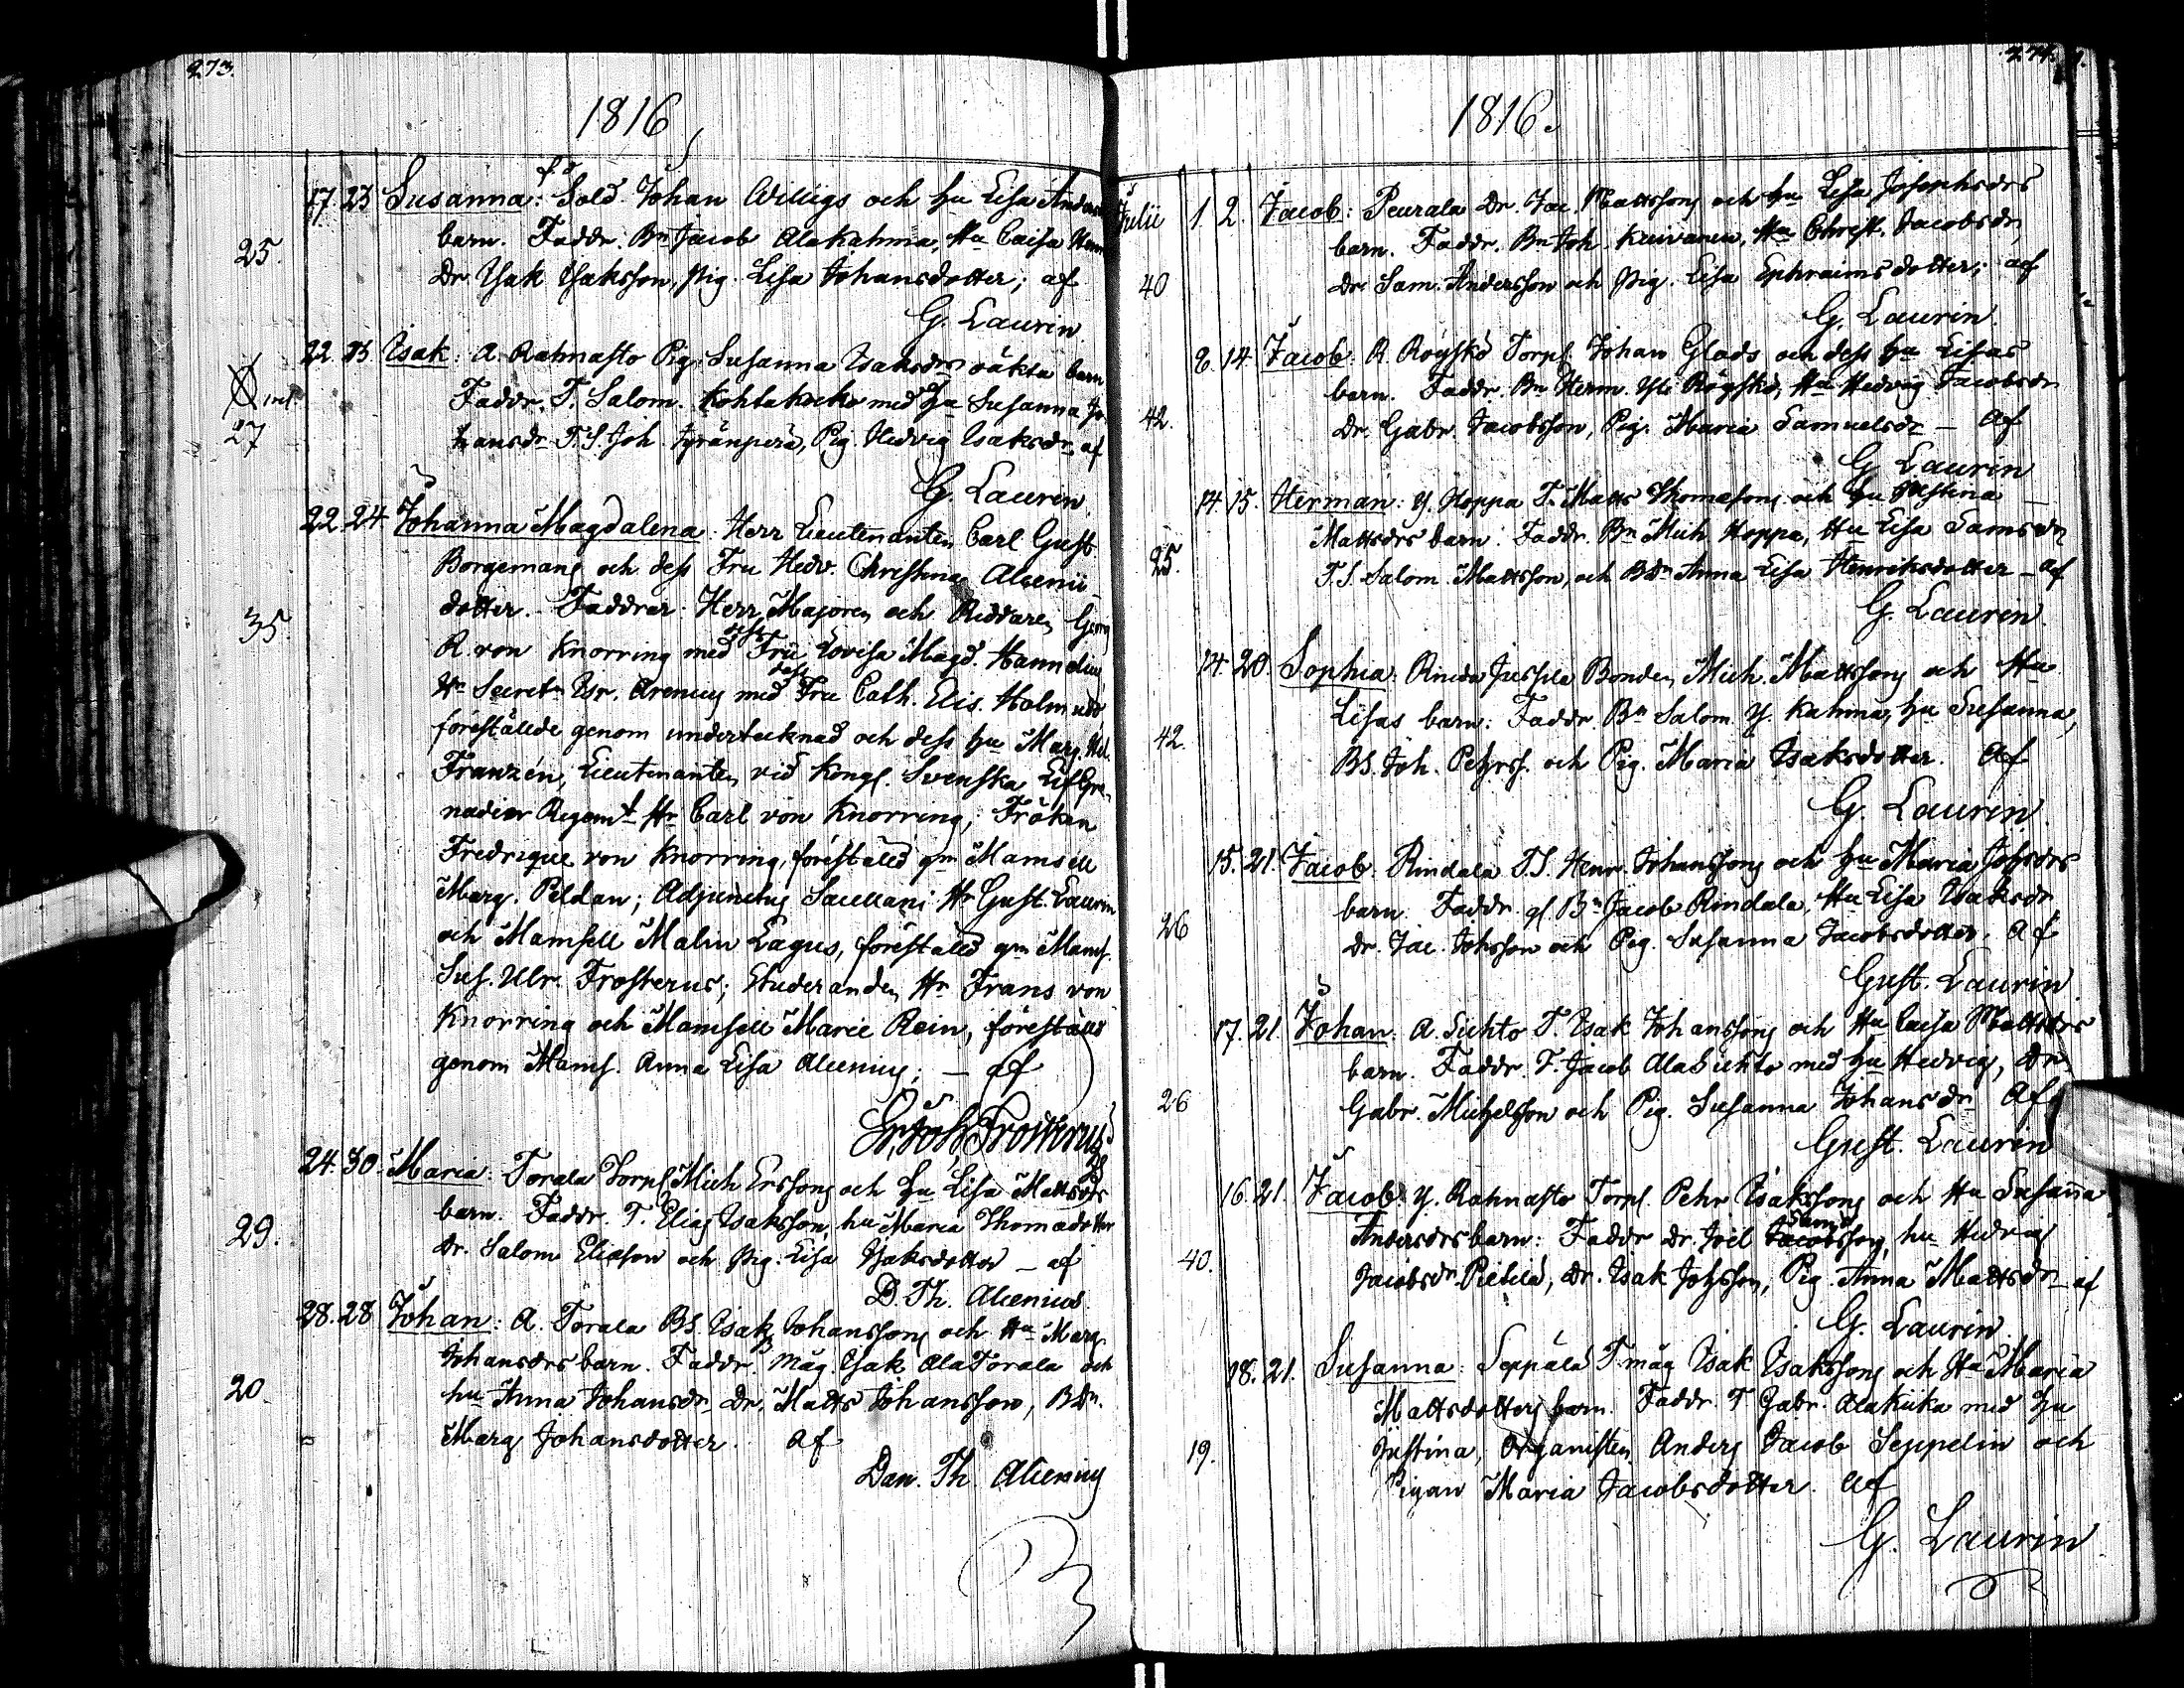 273.
1816
17. 23 Susanna: f.d. Sold. Johan Williigs och hu Lisa Anders
barn. Faddr. Bn Jacob Alakahma, Hu Caisa Herm
25.
Dr Isak Isaksson, Pig. Lisa Johansdotter; af
G. Laurin.
22. 23 Isak: A. Rahnasto Pig. Susanna Isaksdrs oäkta barn
Faddr. T. Salom. Kohtakoko med hu Susanna Jo-
27
hansdr T.S. Joh. Hyränperä, Pig. Hedvig Isaksdr af
G. Laurin.
22. 24 Johanna Magdalena: Herr Lieutenanten Carl Gust.
Borgemans och dess Fru Hedv. Christina Alcenii
dotter. Faddrar: Herr Majoren och Riddaren Georg
35.
R. von Knorring med dess Fru Lovisa Magd. Hanndin
Hr Secret. Isr. Arenius med dess Fru Cath. Elis. Holm
förestälde genom undertecknad och dess hu Marg. Hel.
Franzén, Lieutenanten vid Kongl. Svenska Lif Gre-
nadier Regemt Hr Carl von Knorring; Fröken
Fredrique von Knorring, föreställd gm Mamsell
Marg. Peldan; Adjunctus Sacellani Hr Gust. Laurin
och Mamsell Malin Lagus, föreställd gm Mams.
Sus. Ulr. Frosterus; Studeranden Hr Frans von
Knorring och Mamsell Marie Rein, föreställd
genom Mams. Anna Lisa Alcenius; – af
Er. Joh. Frosterus
24. 30. Maria: Torala Torp. Mich Erssons och hu Lisa Mattsdrs
barn. Faddr. T. Elias Isaksson, hu Maria Thomædotter
29.
Dr. Salom Eliæson och Pig. Lisa Isaksdotter – af
D. Th. Alcenius.
28. 28 Johan: A. Torala BS. Isak Johanssons och Hu Marg.
Johansdrs barn. Faddr. måg. Isak AlaTorala och
20
hu Anna Johansdr Dr. Matts Johansson, BDr.
Marg Johansdotter. af
Dan. Th. Alcenius
274.
1816.
Julii 1. 2. Jacob: Peurala Dr. Jac. Mattssons och hu Lisa Josephsdrs
barn. Faddr. Bn Joh. Kuivanen, Hu Christ. Jacobsdr,
40
Dr Sam. Andersson och Pig. Lisa Ephraimsdotter; af
G. Laurin.
8. 14. Jacob: R. Röyskö Torp. Johan Glads och dess hu Lisas
barn. Faddr. Bn Herm. Yli Röyskö, Hu Hedvig Jacobsdr
42.
Dr. Gabr. Jacobsson, Pig. Maria Samuelsdr – af
G. Laurin
14. 15. Herman: Y. Hoppa T. Matts Thomæsons och hu Justina
Mattsdrs barn. Faddr. Bn Mich. Hoppa, Hu Lisa Samsdr
25.
T.S. Salom. Mattsson, och BDr Anna Lisa Henriksdotter – af
G. Laurin
14. 20. Sophia: Rinda Jussila Bonden Mich. Mattssons och Hu
Lisas barn: Faddr. Bn Salom. Y. Kahma, hu Susanna,
42.
BS. Joh. Pehrss. och Pig. Maria Isaksdotter. af
G. Laurin.
15. 21. Jacob: Rindala T.S. Henr. Johanssons och hu Maria Johsdrs
barn. Faddr. gl. Bn Jacob Rindala, Hu Lisa Isaksdr
26
Dr. Jac. Johsson och Pig. Susanna Jacobsdotter. af
Gust. Laurin
17. 21. Johan: A. Suhto T. Isak Johanssons och Hu Caisa Mattsdrs
barn. Faddr. T. Jacob AlaSuhto med hu Hedvig, Dr
26
Gabr. Michelsson och Pig. Susanna Johansdr af
Gust. Laurin
16. 21. Jacob: Y. Rahnasto Torp. Pehr Isakssons och Hu Susanna
Andersdrs barn: Faddr Dr. Joel Jacobsson, hu Hedvig
40.
Jacobsdr Pietilä, Dr. Isak Johsson, Pig. Anna Mattsdr af
G. Laurin.
18. 21. Susanna: Seppälä T. måg Isak Isakssons och Hu Maria
Mattsdotters barn. Faddr. T Gabr. Alakuka med hu
19.
Justina, Organisten Anders Jacob Seppelin och
Pigan Maria Jacobsdotter. af
G. Laurin